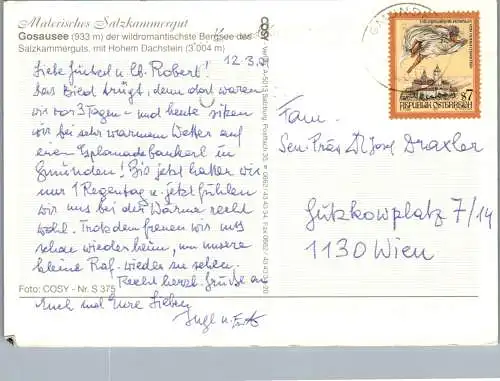 Malerisches Salzkammergut
Gosausee (933 m) der wildromantischste Bergsee des
Salzkammerguts, mit Hohem Dachstein (3.004 m)
12.3.
Liebe Gustel u. Lb. Robert!
Das Bild trügt, denn dort waren
wir vor 3 Tagen - und heute sitzen
wir bei sehr warmem Wetter auf
einem Esplanadebankerl in
Gmunden! Bis jetzt hatten wir
nur 1 Regentag u. jetzt fühlen
wir uns bei der Wärme recht
wohl. Trotzdem freuen wir uns
schon wieder heim, um unsere
kleine Raf. wieder zu sehen.
Recht herzl. Grüße an
Euch und Eure Lieben
Inge u.
Foto: COSY - Nr. S 375
COSY
A-5013 Salzburg
GMUNDEN
S7
REPUBLIK ÖSTERREICH
Fam.
Sen. Präs Dr Josef Draxler
Gützkowplatz 7/14
1130 Wien